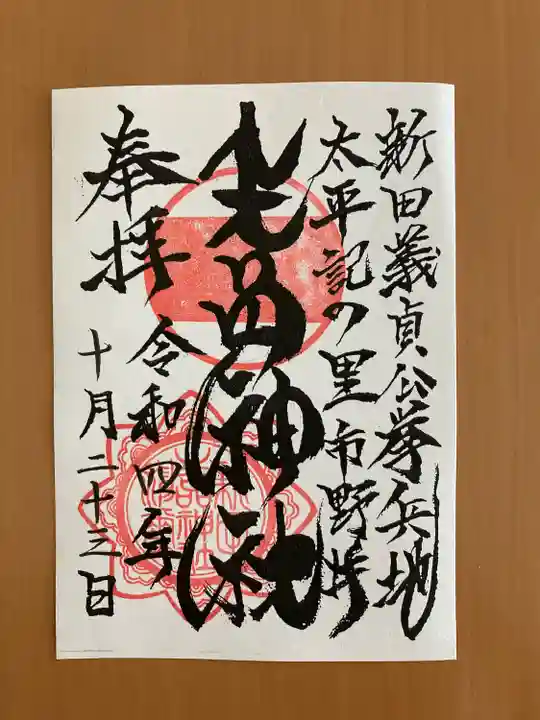 新田義貞公挙兵地
太平記の里市野井
生品神社
奉拝
令和四年
十月二十三日